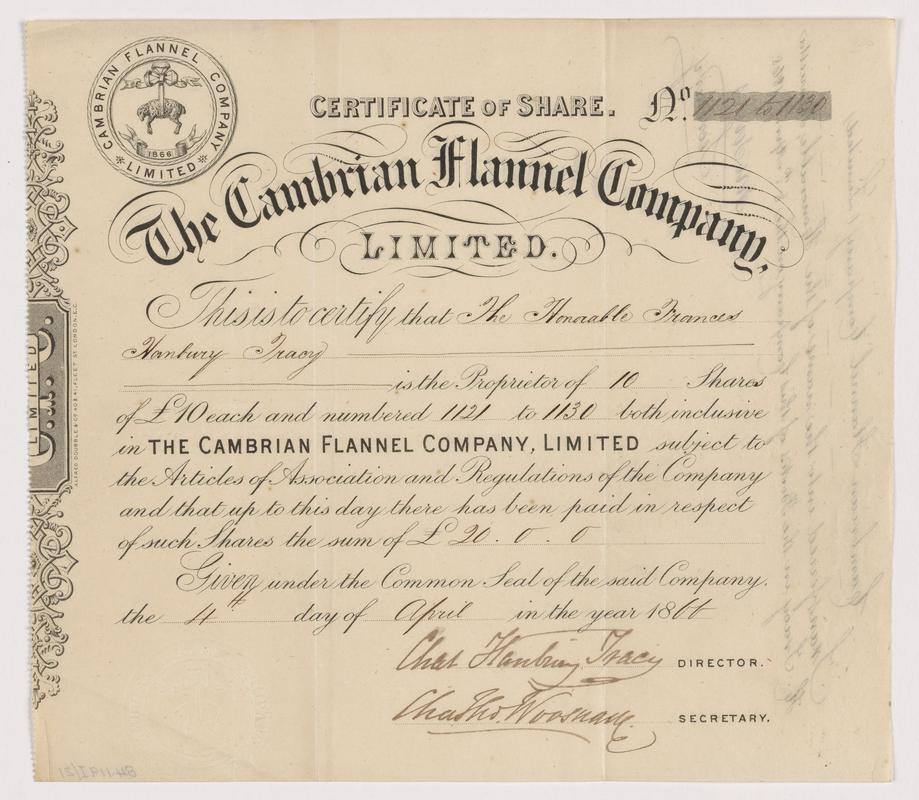 CAMBRIAN FLANNEL COMPANY
LIMITED
1866
CERTIFICATE OF SHARE.
No. 1121 to 1130
The Cambrian Flannel Company,
LIMITED.
This is to certify that The Honorable Frances
Hanbury Tracy
is the Proprietor of 10 Shares
of £10 each and numbered 1121 to 1130 both inclusive
in THE CAMBRIAN FLANNEL COMPANY, LIMITED subject to
the Articles of Association and Regulations of the Company
and that up to this day there has been paid in respect
of such Shares the sum of £ 20 . 0 . 0
Given under the Common Seal of the said Company.
the 4th day of April in the year 1866
Chas Hanbury Tracy DIRECTOR.
Chas Tho. Woosnam SECRETARY.
LIMITED